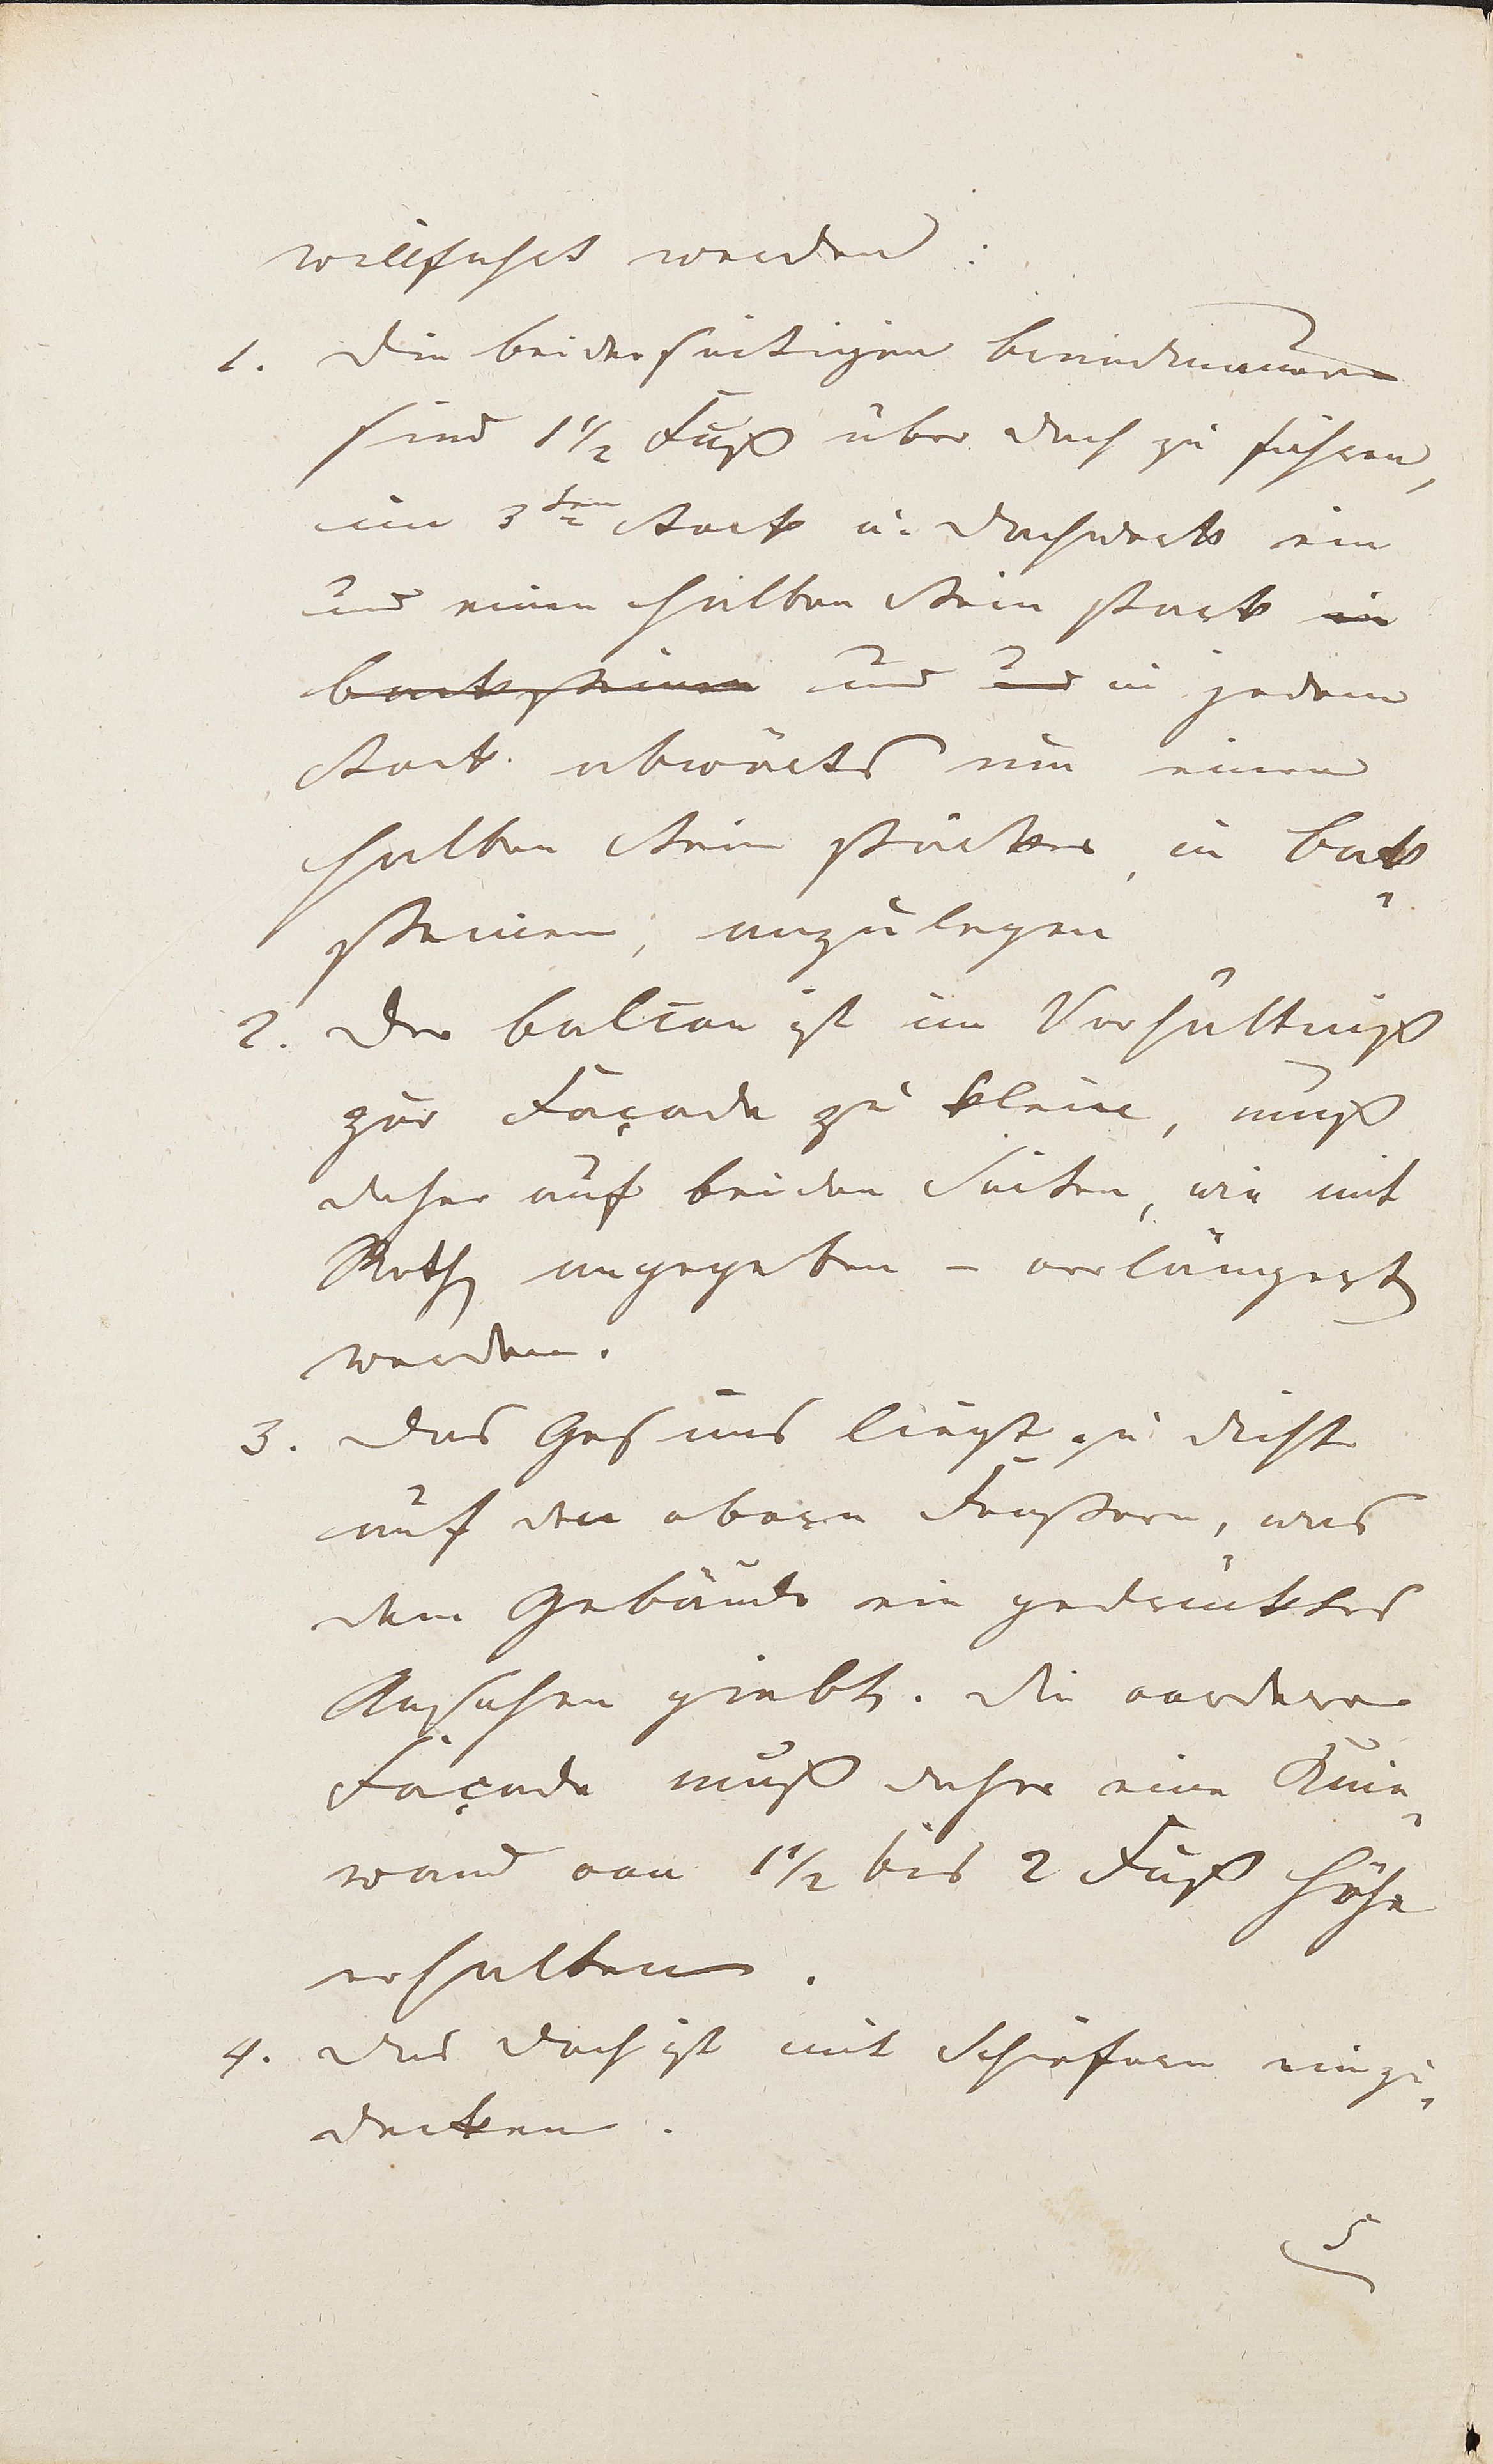 willfahrt werden:
1. Die beiderseitigen Brandmauern
sind 1 1/2 Fuß über Dach zu führen,
im 3ten Stock u. Dachwerk ein
und einen halben Stein stark in
Backsteinen und und in jedem
Stock abwärts um einen
halben Stein stärker, in Back-
steinen, anzulegen
2. Der Balcon ist im Verhältniß
zur Façade zu klein, muß
daher auf beiden Seiten, wie mit
Roth angegeben – verlängert
werden.
3. Das Gesims liegt zu dicht
auf den obern Fenstern, was
dem Gebäude ein gedrücktes
Ansehen giebt. Die vordere
Façade muß daher eine Knie-
wand von 1 1/2 bis 2 Fuß Höhe
erhalten.
4. Das Dach ist mit Schiefern einzu-
decken.
5